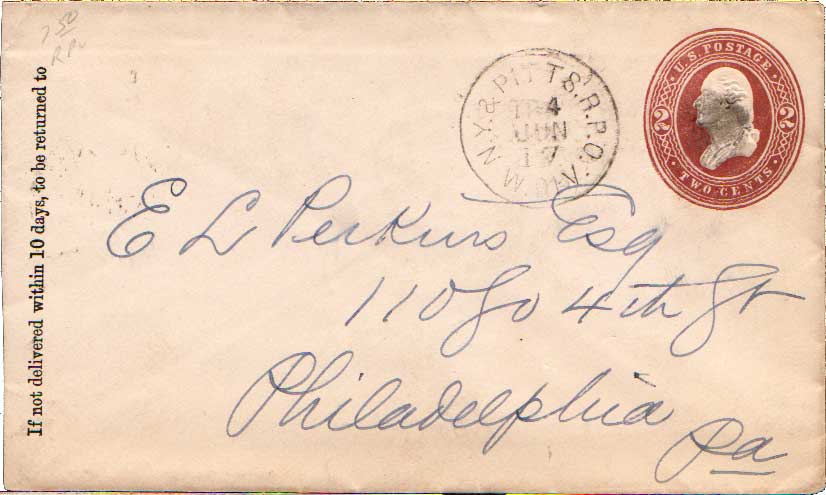 7 50
R Po
If not delivered within 10 days, to be returned to
N.Y. & PITTS. R.P.O.
TR 4
JUN
17
U.S. POSTAGE
2 2
TWO CENTS
E L Perkins Esq
110 So 4th St
Philadelphia
Pa